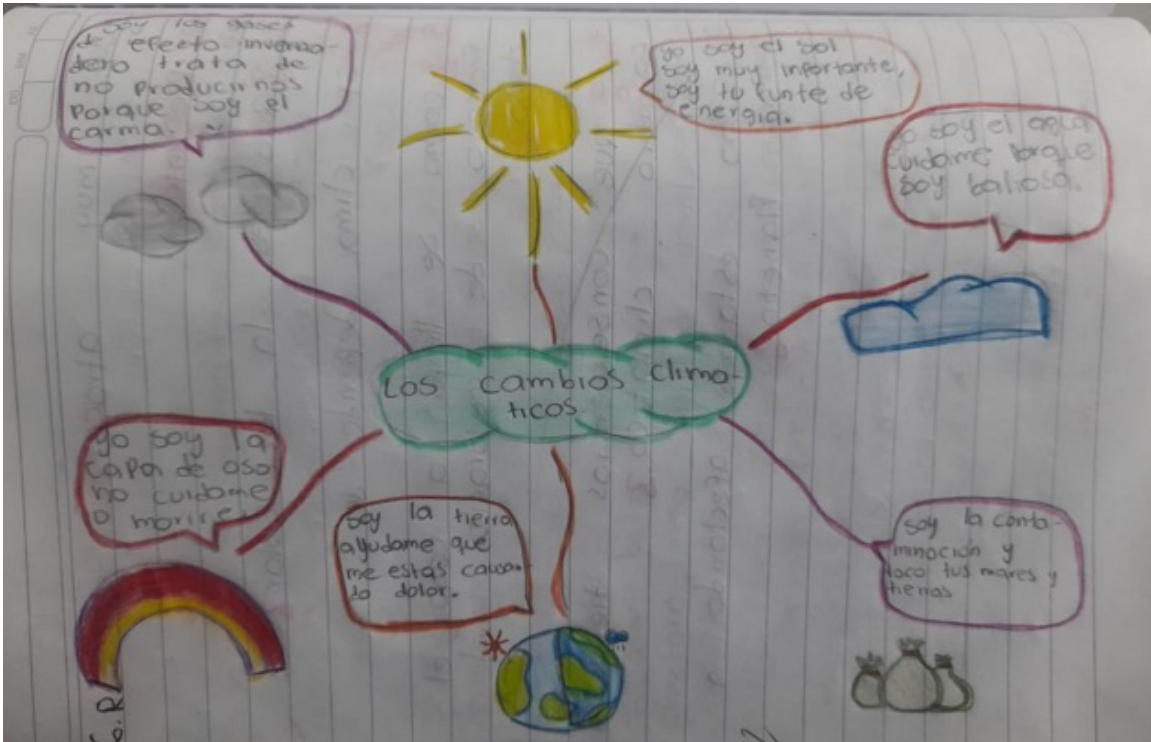 soy los gases
de efecto inverna-
dero trata de
no producirnos
porque soy el
carma.
yo soy el sol
soy muy importante,
soy tu funte de
energia.
yo soy el agua
cuidame porque
soy baliosa.
Los cambios clima-
ticos
yo soy la
capa de oso
no cuidame
o morire.
soy la tierra
ayudame que
me estas causan-
do dolor.
soy la conta-
minación y
toco tus mares y
tierras
G.R